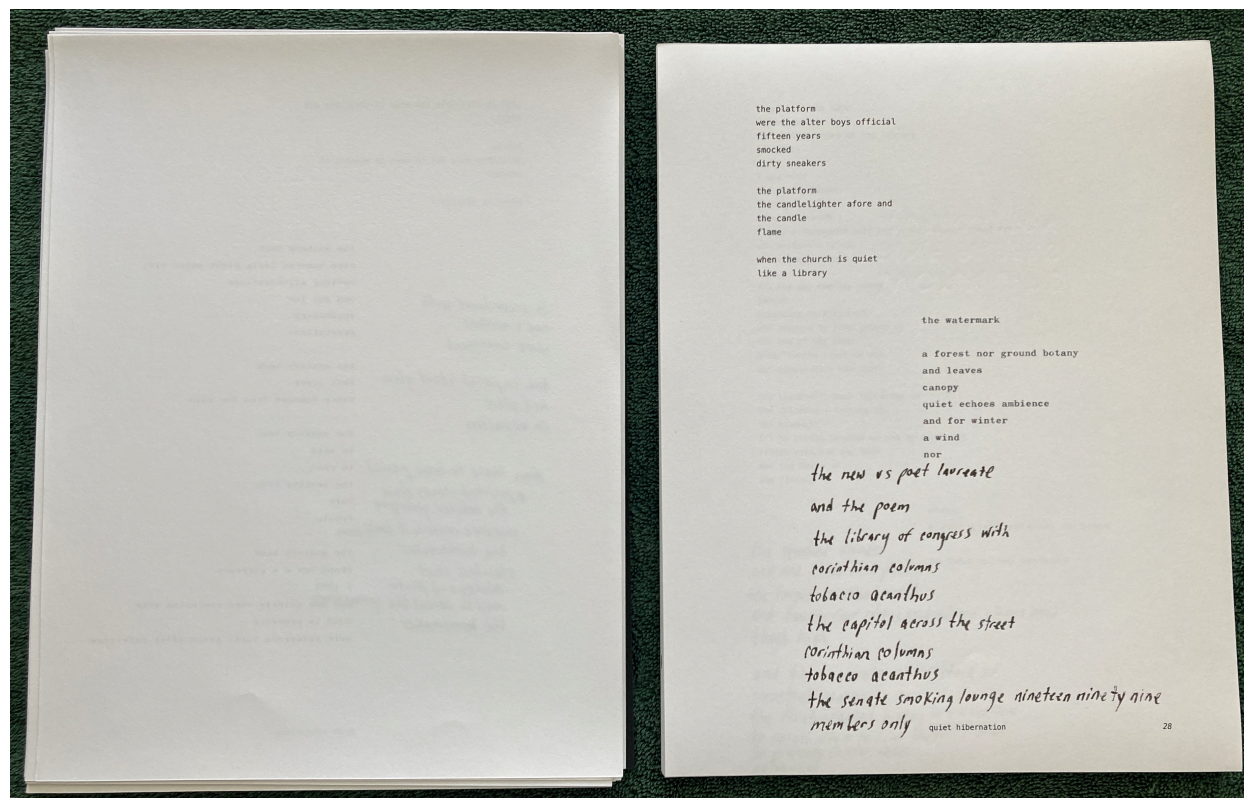 the platform
were the alter boys official
fifteen years
smocked
dirty sneakers
the platform
the candlelighter afore and
the candle
flame
when the church is quiet
like a library
the watermark
a forest nor ground botany
and leaves
canopy
quiet echoes ambience
and for winter
a wind
nor
the new us poet laureate
and the poem
the library of congress with
corinthian columns
tobacco acanthus
the capitol across the street
corinthian columns
tobacco acanthus
the senate smoking lounge nineteen ninety nine
members only
quiet hibernation 28